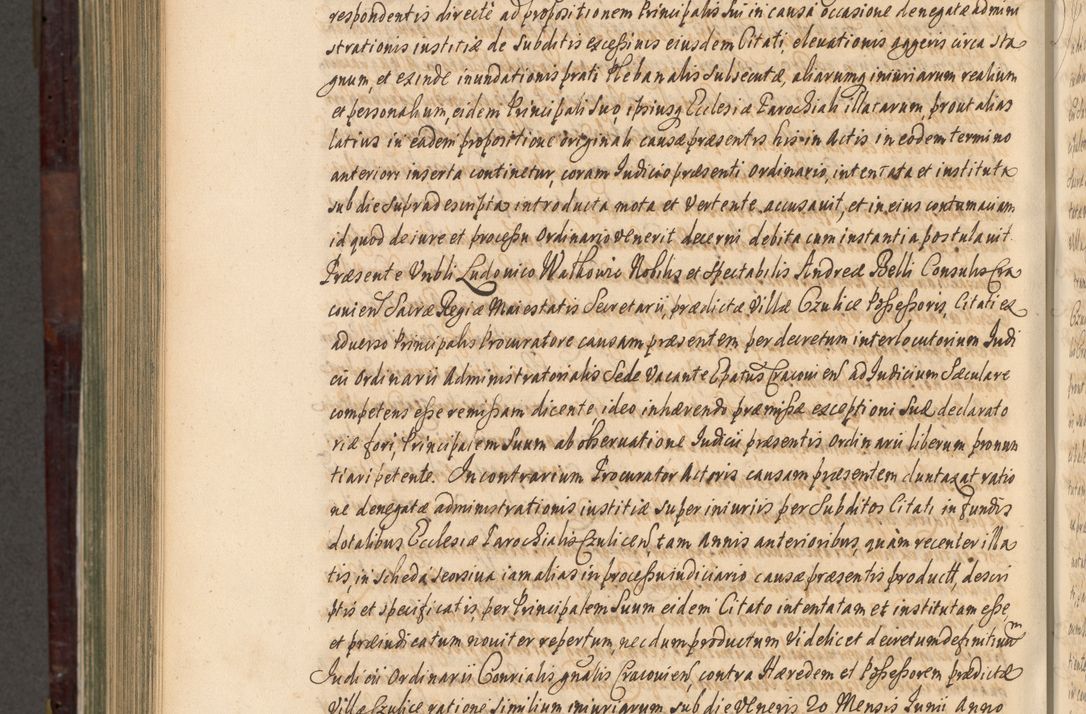 respondentis directè ad propositionem Principalis sui in causa occasione denegatæ admini
strationis iustitiæ de subditis excessivis eiusdem Citati, elevationis aggeris circa sta
gnum, et exinde inundationis prati Plebanalis subsecutæ, aliarumq iniuriarum realium
et personalium, eidem Principali suo, ipsiusq Ecclesiæ Parochiali illatarum, prout alias
latius in eadem propositione originali causæ præsentis his in Actis in eodem termino
anteriori inserta continetur, coram Iudicio præsenti Ordinario, intentata et instituta
sub die supradescripta introducta mota et vertente, accusauit, et in eius contumaciam
id quod de iure et processu Ordinario venerit decerni debita cum instantia postulauit.
Præsente Vnbli Ludovico Walkowic Nobilis et Spectabilis Andreæ Belli Consulis Cra
couien Sacræ Regiæ Maiestatis Secretarii, prædictæ Villæ Czulice Possessoris, Citati ex
adverso Principalis Procuratore causam præsentem per decretum interlocutorium Iudi
cii Ordinarii Administratorialis Sede Vacante Epatus Cracouien ad Iudicium Sæculare
competens esse remissam dicente, ideo inhærendo præmissæ exceptioni suæ declarato
riæ fori, Principalem suum ab observatione Iudicii præsentis Ordinarii liberum pronun
tiari petente. In contrarium Procurator Actoris causam præsentem duntaxat ratio
ne denegatæ administrationis iustitiæ super iniuriis per Subditos Citati in fundis
dotalibus Ecclesiæ Parochialis Czulicen, tam annis anterioribus, quàm recenter illa
tis, in scheda seorsiua iam alias in processu iudiciario causæ præsentis product, descri
ptis et specificatis, per Principalem suum eidem Citato intentatam et institutam esse
et præiudicatum noviter repertum, necdum productum videlicet decretum definitiuum
Iudicii Ordinarii Conrialis gnalis Cracouien, contra Hæredem et Possessorem prædictæ
Villæ Czulice ratione similium iniuriarum sub die Veneris 20 Mensis Iunii Anno